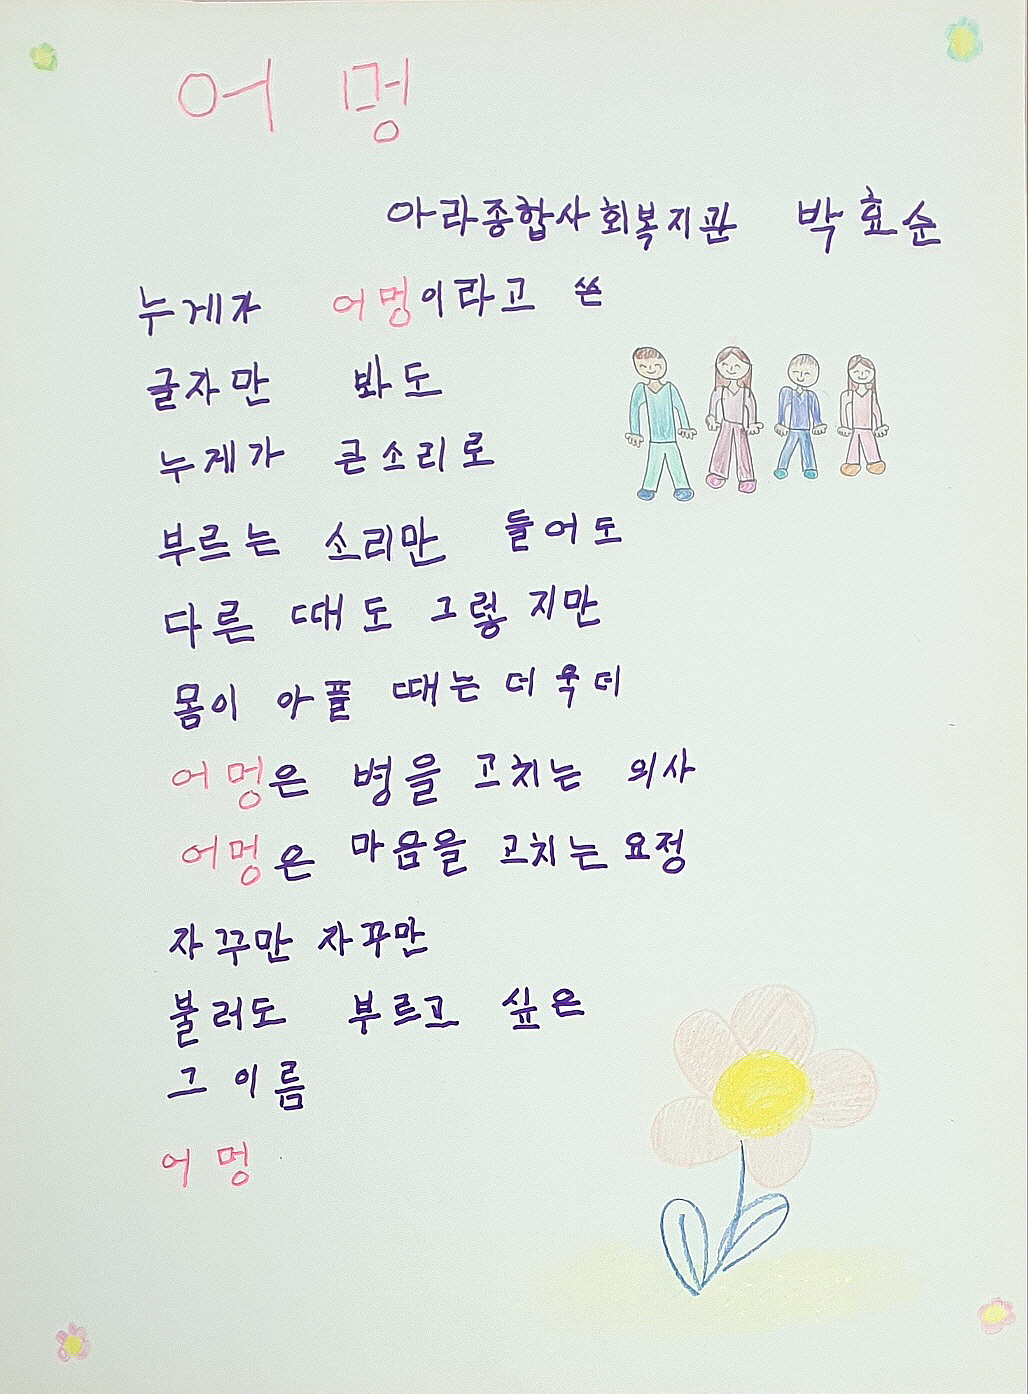 어멍
아라종합사회복지관 박효순
누게가 어멍이라고 쓴
글자만 봐도
누게가 큰소리로
부르는 소리만 들어도
다른 때도 그렇지만
몸이 아플 때는 더욱더
어멍은 병을 고치는 의사
어멍은 마음을 고치는 요정
자꾸만 자꾸만
불러도 부르고 싶은
그 이름
어멍